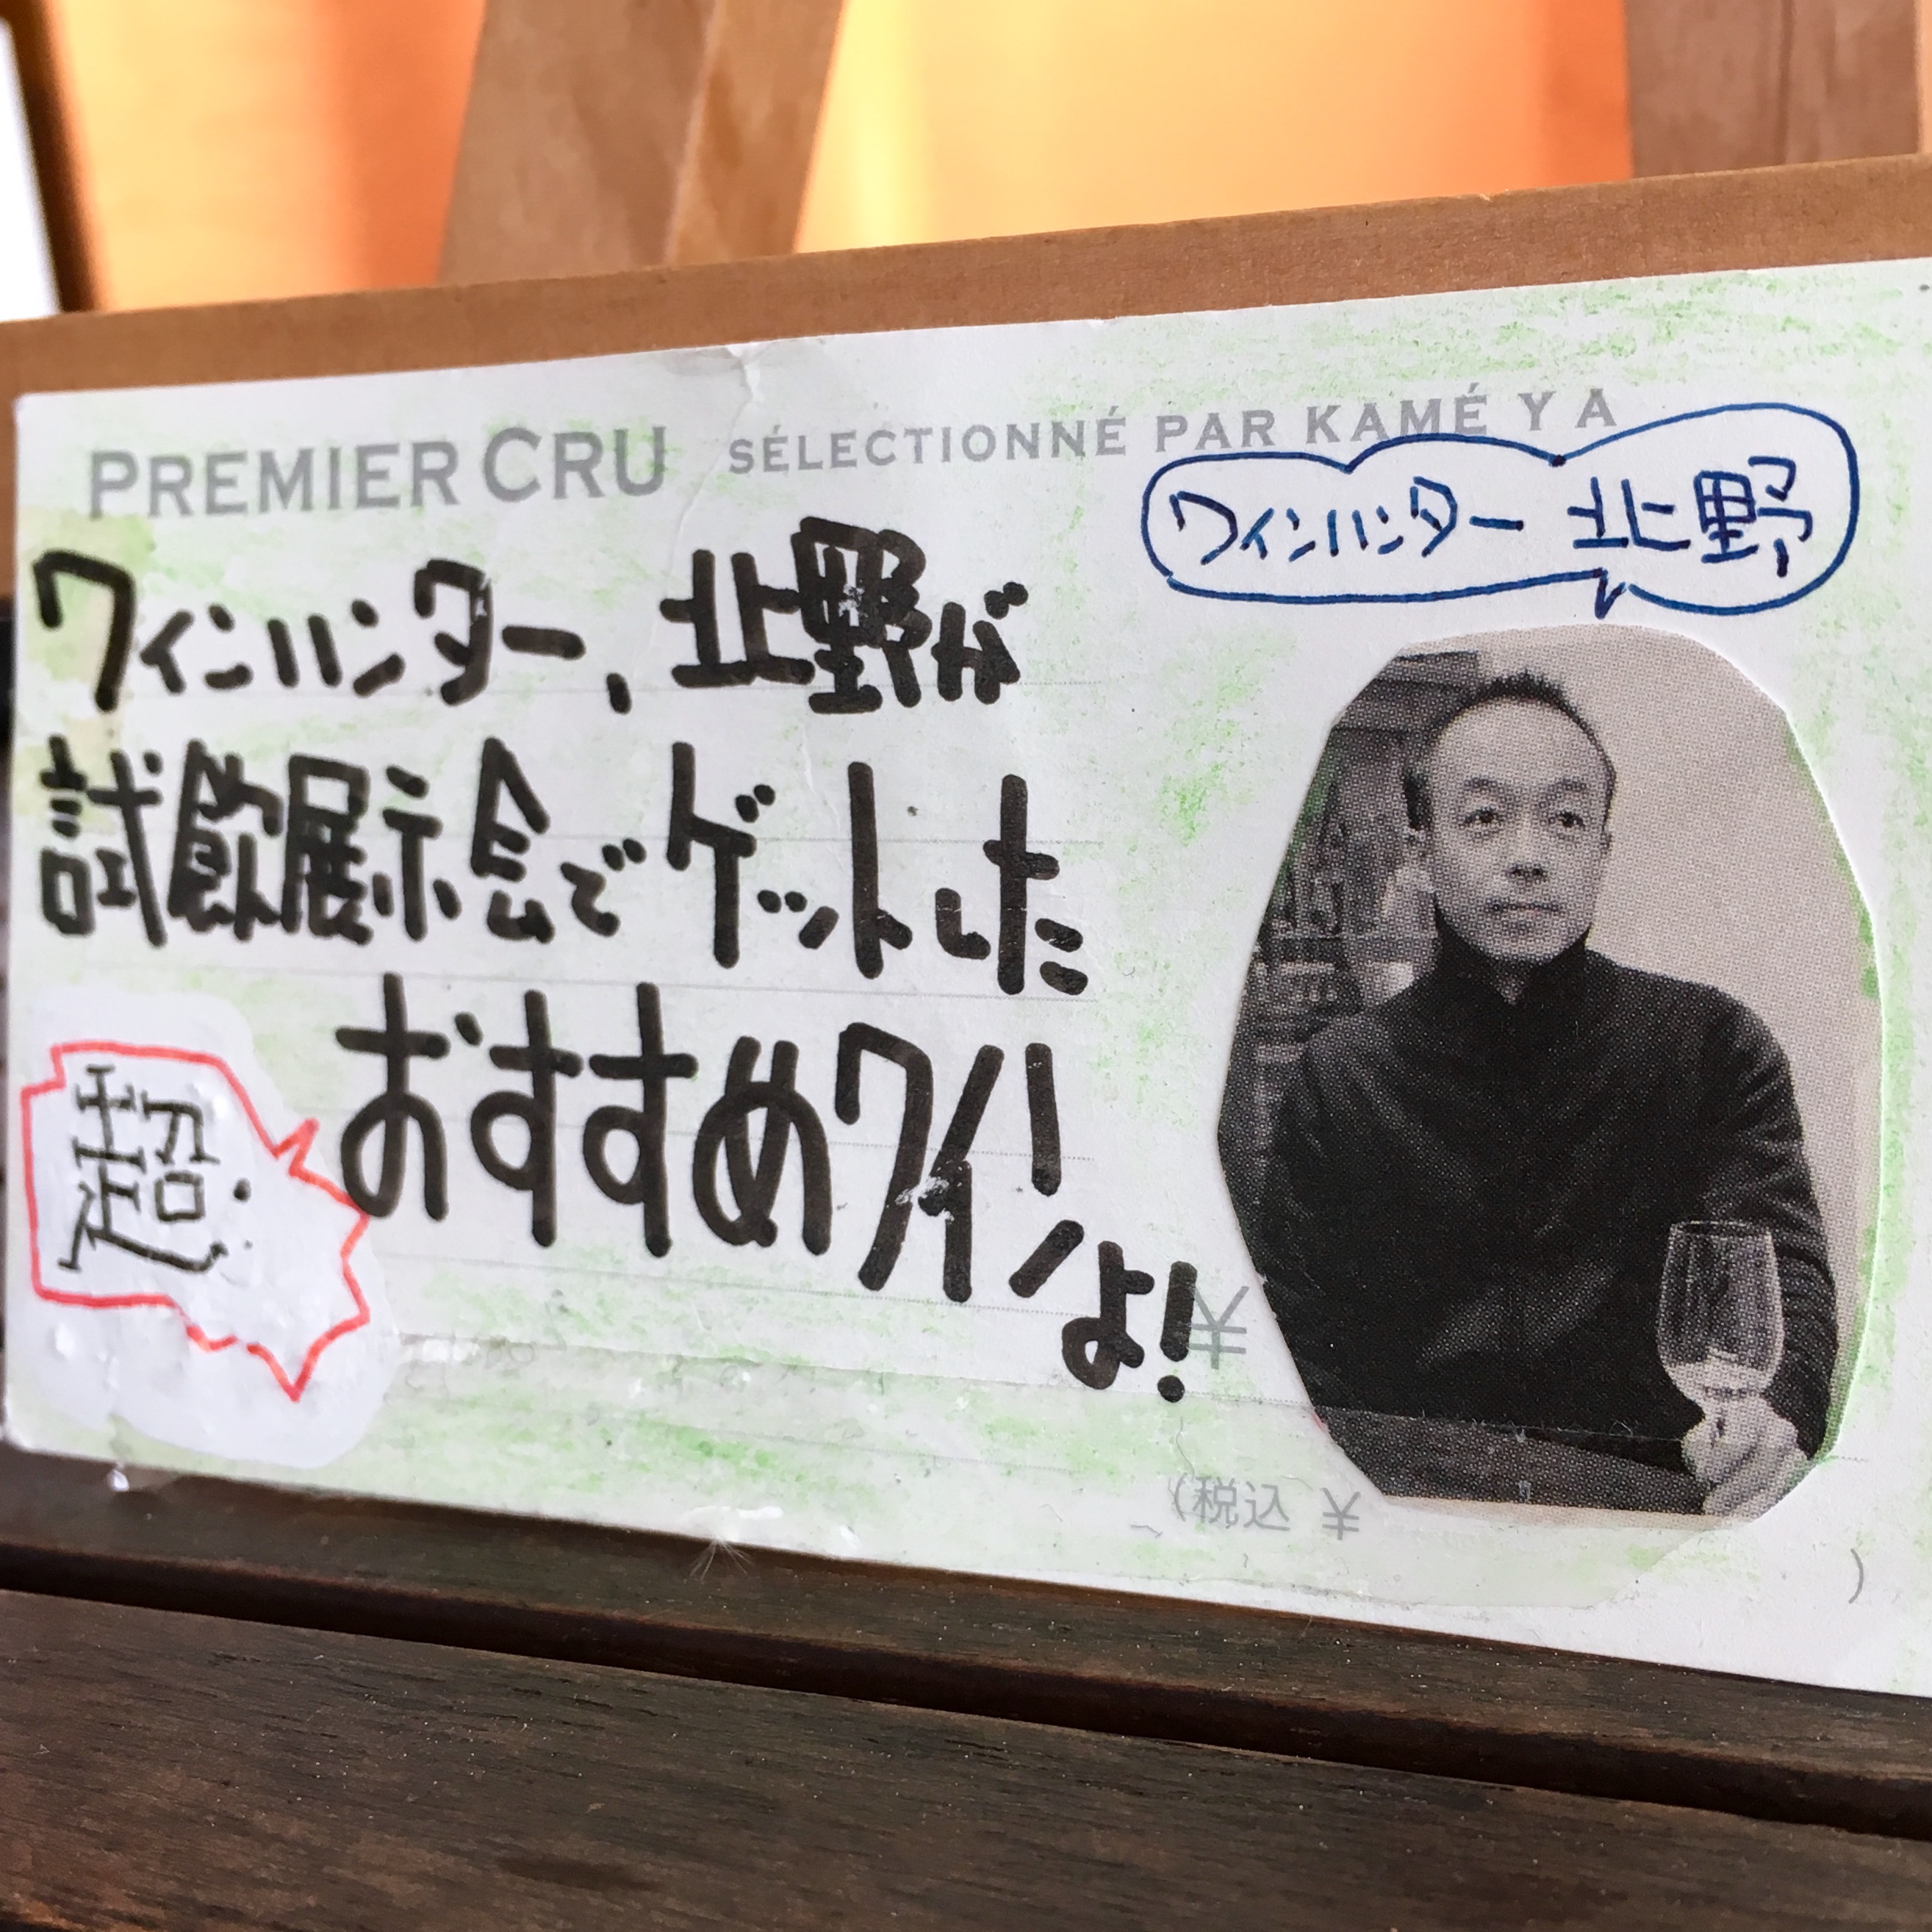 PREMIER CRU SÉLECTIONNÉ PAR KAMÉYA
ワインハンター 北野
ワインハンター、北野が
試飲展示会でゲットした
超
おすすめワインよ!
¥
(税込 ¥ )